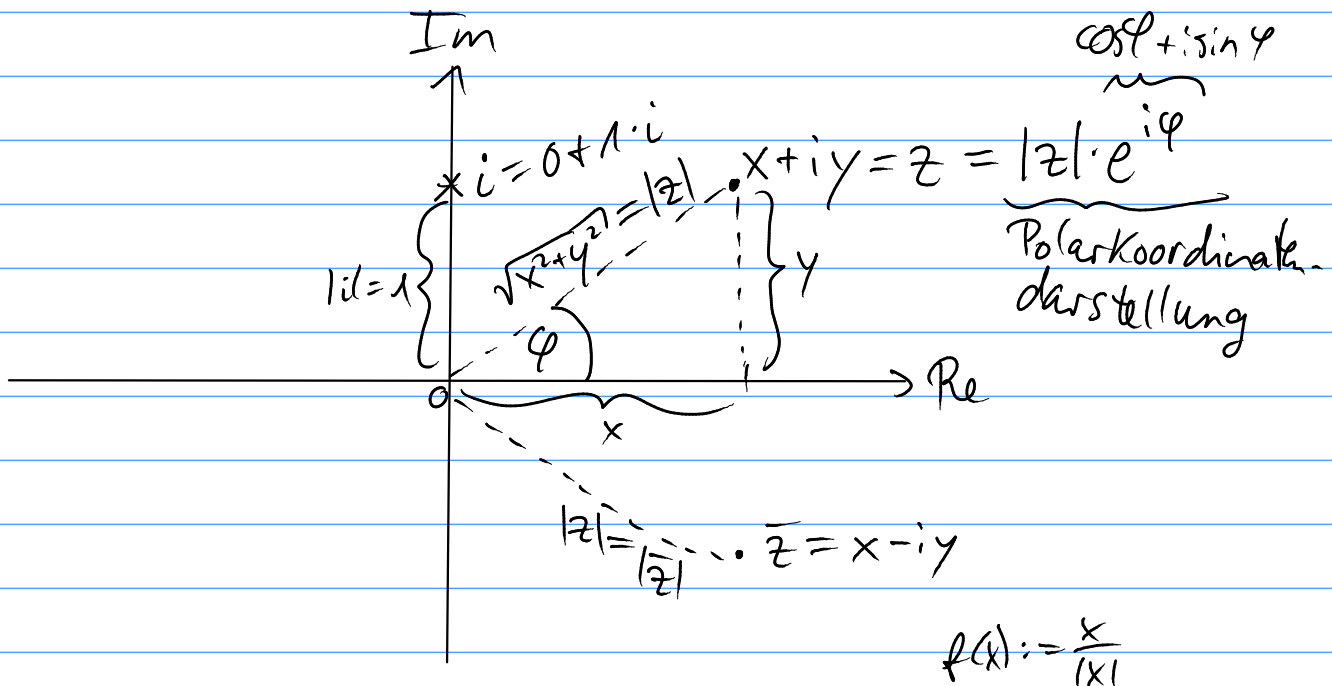 Im
cosφ + i sin φ
i = 0 + 1·i
x + iy = z = |z|·e^{iφ}
√(x²+y²) = |z|
Polarkoordinaten-
darstellung
|i| = 1
y
φ
0
Re
x
|z| = |z̅|
z̅ = x - iy
f(x) := x/|x|